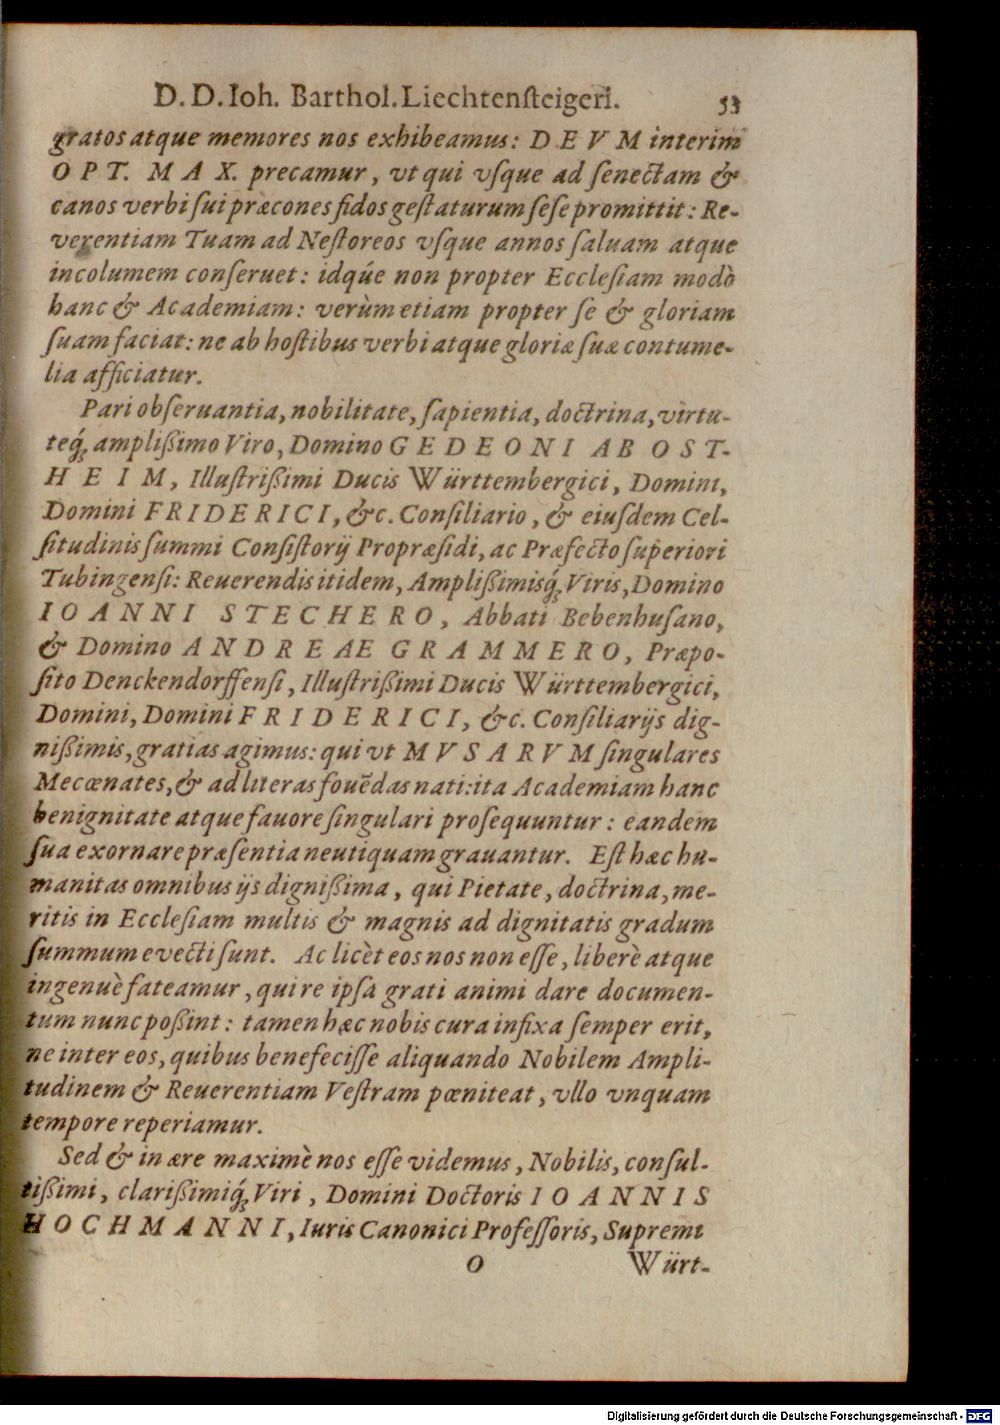 D. D. Ioh. Barthol. Liechtenſteigeri. 53
gratos atque memores nos exhibeamus: D E V M interim
O P T. M A X. precamur, vt qui vſque ad ſenectam &
canos verbi ſui præcones fidos geſtaturum ſeſe promittit: Re-
verentiam Tuam ad Neſtoreos vſque annos ſaluam atque
incolumem conſeruet: idq́ue non propter Eccleſiam modò
hanc & Academiam: verùm etiam propter ſe & gloriam
ſuam faciat: ne ab hoſtibus verbi atque gloriæ ſuæ contume-
lia afficiatur.
Pari obſeruantia, nobilitate, ſapientia, doctrina, virtu-
teq́; amplißimo Viro, Domino G E D E O N I A B O S T-
H E I M, Illuſtrißimi Ducis Württembergici, Domini,
Domini F R I D E R I C I, &c. Conſiliario, & eiuſdem Cel-
ſitudinis ſummi Conſiſtorij Propræſidi, ac Præfecto ſuperiori
Tubingenſi: Reuerendis itidem, Amplißimisq́; Viris, Domino
I O A N N I S T E C H E R O, Abbati Bebenhuſano,
& Domino A N D R E AE G R A M M E R O, Præpo-
ſito Denckendorffenſi, Illuſtrißimi Ducis Württembergici,
Domini, Domini F R I D E R I C I, &c. Conſiliarijs dig-
nißimis, gratias agimus: qui vt M V S A R V M ſingulares
Mecœnates, & ad literas fouẽdas nati: ita Academiam hanc
benignitate atque fauore ſingulari proſequuntur: eandem
ſua exornare præſentia neutiquam grauantur. Eſt hæc hu-
manitas omnibus ijs dignißima, qui Pietate, doctrina, me-
ritis in Eccleſiam multis & magnis ad dignitatis gradum
ſummum evecti ſunt. Ac licèt eos nos non eſſe, liberè atque
ingenuè fateamur, qui re ipſa grati animi dare documen-
tum nunc poßint: tamen hæc nobis cura infixa ſemper erit,
ne inter eos, quibus benefeciſſe aliquando Nobilem Ampli-
tudinem & Reuerentiam Veſtram pœniteat, vllo vnquam
tempore reperiamur.
Sed & in ære maximè nos eſſe videmus, Nobilis, conſul-
tißimi, clarißimiq́; Viri, Domini Doctoris I O A N N I S
H O C H M A N N I, Iuris Canonici Profeſſoris, Supremi
O Würt-
Digitalisierung gefördert durch die Deutsche Forschungsgemeinschaft - DFG